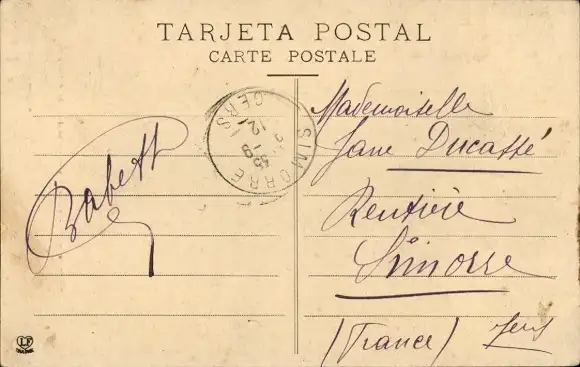 TARJETA POSTAL
CARTE POSTALE
SIMORRE
GERS
Mademoiselle
Jane Ducassé
Rentière
Simorre
(France) Gers
Babeth
LF